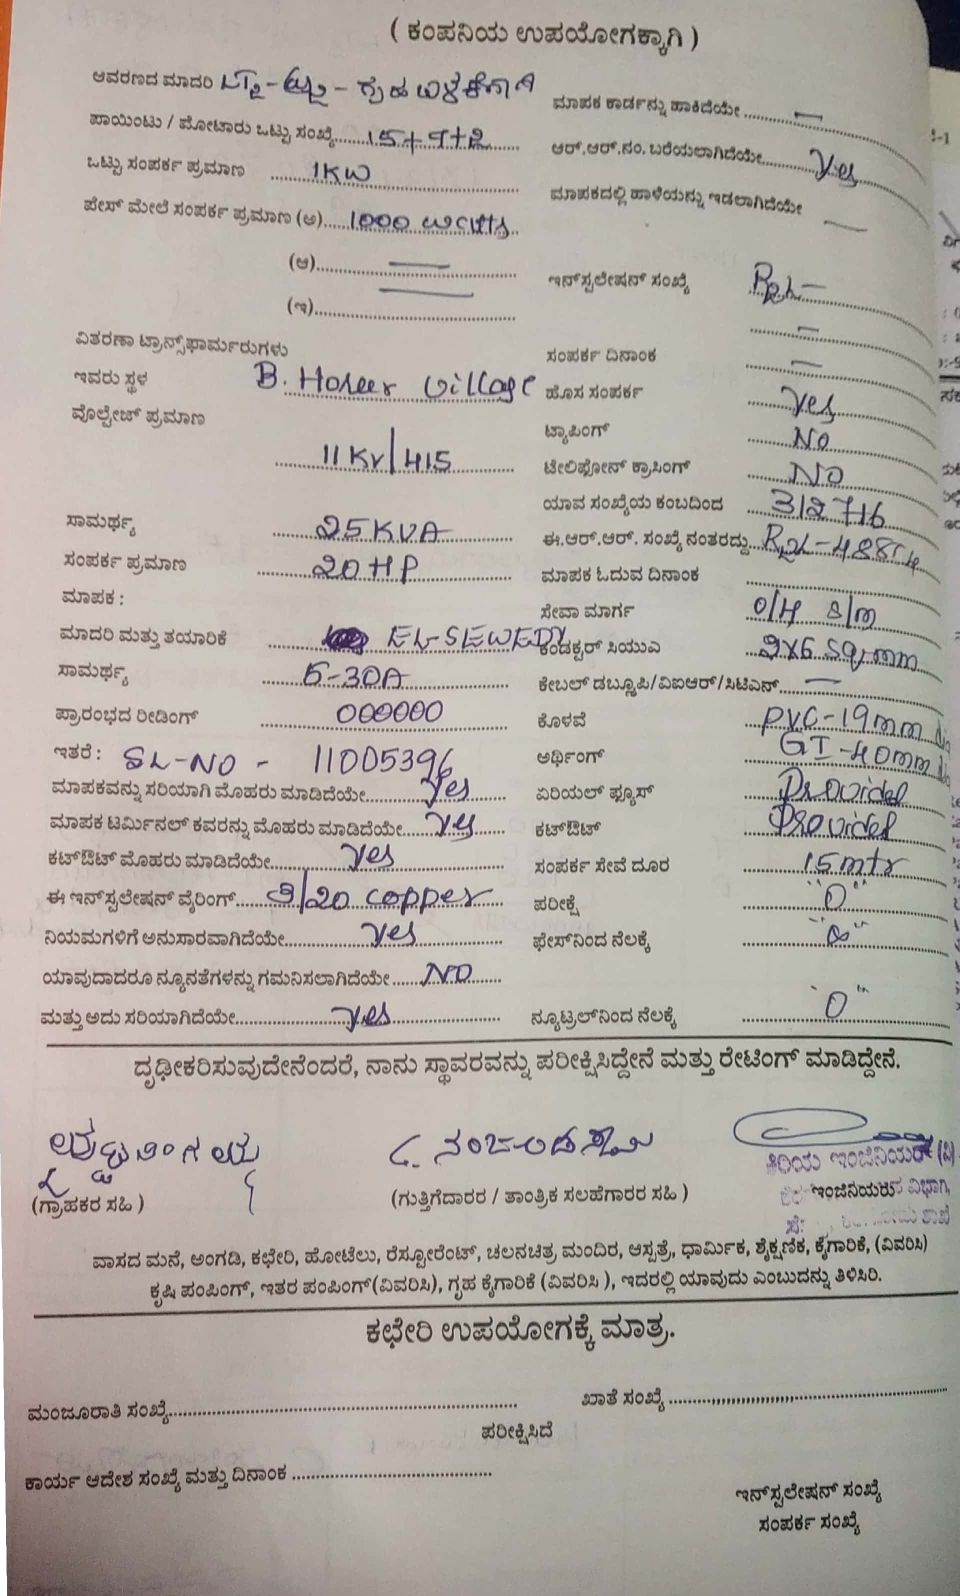 ( ಕಂಪನಿಯ ಉಪಯೋಗಕ್ಕಾಗಿ )
ಆವರಣದ ಮಾದರಿ - ಗೃಹ
ಪಾಯಿಂಟು / ಮೋಟಾರು ಒಟ್ಟು ಸಂಖ್ಯೆ 15+9+2
ಒಟ್ಟು ಸಂಪರ್ಕ ಪ್ರಮಾಣ 1KW
ಪೇಸ್ ಮೇಲೆ ಸಂಪರ್ಕ ಪ್ರಮಾಣ (ಅ) 1000 watts
(ಆ) —
(ಇ) —
ವಿತರಣಾ ಟ್ರಾನ್ಸ್‌ಫಾರ್ಮರುಗಳು
ಇವರು ಸ್ಥಳ B. Hoseer village
ವೊಲ್ಟೇಜ್ ಪ್ರಮಾಣ
11KV/415
ಸಾಮರ್ಥ್ಯ 25KVA
ಸಂಪರ್ಕ ಪ್ರಮಾಣ 20HP
ಮಾಪಕ :
ಮಾದರಿ ಮತ್ತು ತಯಾರಿಕೆ EL-SEWEDY
ಸಾಮರ್ಥ್ಯ 5-30A
ಪ್ರಾರಂಭದ ರೀಡಿಂಗ್ 000000
ಇತರೆ : SL-NO - 11005396
ಮಾಪಕವನ್ನು ಸರಿಯಾಗಿ ಮೊಹರು ಮಾಡಿದೆಯೇ Yes
ಮಾಪಕ ಟರ್ಮಿನಲ್ ಕವರನ್ನು ಮೊಹರು ಮಾಡಿದೆಯೇ Yes
ಕಟ್‌ಔಟ್ ಮೊಹರು ಮಾಡಿದೆಯೇ Yes
ಈ ಇನ್‌ಸ್ಪಲೇಷನ್ ವೈರಿಂಗ್ 3/20 copper
ನಿಯಮಗಳಿಗೆ ಅನುಸಾರವಾಗಿದೆಯೇ Yes
ಯಾವುದಾದರೂ ನ್ಯೂನತೆಗಳನ್ನು ಗಮನಿಸಲಾಗಿದೆಯೇ NO
ಮತ್ತು ಅದು ಸರಿಯಾಗಿದೆಯೇ Yes
ಮಾಪಕ ಕಾರ್ಡನ್ನು ಹಾಕಿದೆಯೇ —
ಆರ್.ಆರ್.ನಂ. ಬರೆಯಲಾಗಿದೆಯೇ Yes
ಮಾಪಕದಲ್ಲಿ ಹಾಳೆಯನ್ನು ಇಡಲಾಗಿದೆಯೇ —
ಇನ್‌ಸ್ಪಲೇಷನ್ ಸಂಖ್ಯೆ R2L—
—
ಸಂಪರ್ಕ ದಿನಾಂಕ —
ಹೊಸ ಸಂಪರ್ಕ Yes
ಟ್ಯಾಪಿಂಗ್ NO
ಟೇಲಿಫೋನ್ ಕ್ರಾಸಿಂಗ್ NO
ಯಾವ ಸಂಖ್ಯೆಯ ಕಂಬದಿಂದ
ಈ.ಆರ್.ಆರ್. ಸಂಖ್ಯೆ ನಂತರದ್ದು
ಮಾಪಕ ಓದುವ ದಿನಾಂಕ
ಸೇವಾ ಮಾರ್ಗ O/H S/m
ಕಂಡಕ್ಟರ್ ಸಿಯುಎ 2x6 sq mm
ಕೇಬಲ್ ಡಬ್ಲ್ಯೂಪಿ/ವಿಐಆರ್/ಸಿಟಿಎನ್ —
ಕೊಳವೆ PVC-19mm
ಅರ್ಥಿಂಗ್ GI-40mm
ಏರಿಯಲ್ ಫ್ಯೂಸ್ Provided
ಕಟ್‌ಔಟ್ Provided
ಸಂಪರ್ಕ ಸೇವೆ ದೂರ 15mtr
ಪರೀಕ್ಷೆ "0"
ಫೇಸ್‌ನಿಂದ ನೆಲಕ್ಕೆ "∞"
ನ್ಯೂಟ್ರಲ್‌ನಿಂದ ನೆಲಕ್ಕೆ "0"
ದೃಢೀಕರಿಸುವುದೇನೆಂದರೆ, ನಾನು ಸ್ಥಾವರವನ್ನು ಪರೀಕ್ಷಿಸಿದ್ದೇನೆ ಮತ್ತು ರೇಟಿಂಗ್ ಮಾಡಿದ್ದೇನೆ.
ಕಿರಿಯ ಇಂಜಿನಿಯರ್ (ವಿ)
(ಗ್ರಾಹಕರ ಸಹಿ )
(ಗುತ್ತಿಗೆದಾರರ / ತಾಂತ್ರಿಕ ಸಲಹೆಗಾರರ ಸಹಿ )
ಇಂಜಿನಿಯರು ವಿಭಾಗ,
ವಾಸದ ಮನೆ, ಅಂಗಡಿ, ಕಛೇರಿ, ಹೋಟೆಲು, ರೆಸ್ಟೋರೆಂಟ್, ಚಲನಚಿತ್ರ ಮಂದಿರ, ಆಸ್ಪತ್ರೆ, ಧಾರ್ಮಿಕ, ಶೈಕ್ಷಣಿಕ, ಕೈಗಾರಿಕೆ, (ವಿವರಿಸಿ)
ಕೃಷಿ ಪಂಪಿಂಗ್, ಇತರ ಪಂಪಿಂಗ್(ವಿವರಿಸಿ), ಗೃಹ ಕೈಗಾರಿಕೆ (ವಿವರಿಸಿ ), ಇದರಲ್ಲಿ ಯಾವುದು ಎಂಬುದನ್ನು ತಿಳಿಸಿರಿ.
ಕಛೇರಿ ಉಪಯೋಗಕ್ಕೆ ಮಾತ್ರ.
ಮಂಜೂರಾತಿ ಸಂಖ್ಯೆ
ಖಾತೆ ಸಂಖ್ಯೆ
ಪರೀಕ್ಷಿಸಿದೆ
ಕಾರ್ಯ ಆದೇಶ ಸಂಖ್ಯೆ ಮತ್ತು ದಿನಾಂಕ
ಇನ್‌ಸ್ಪಲೇಷನ್ ಸಂಖ್ಯೆ
ಸಂಪರ್ಕ ಸಂಖ್ಯೆ